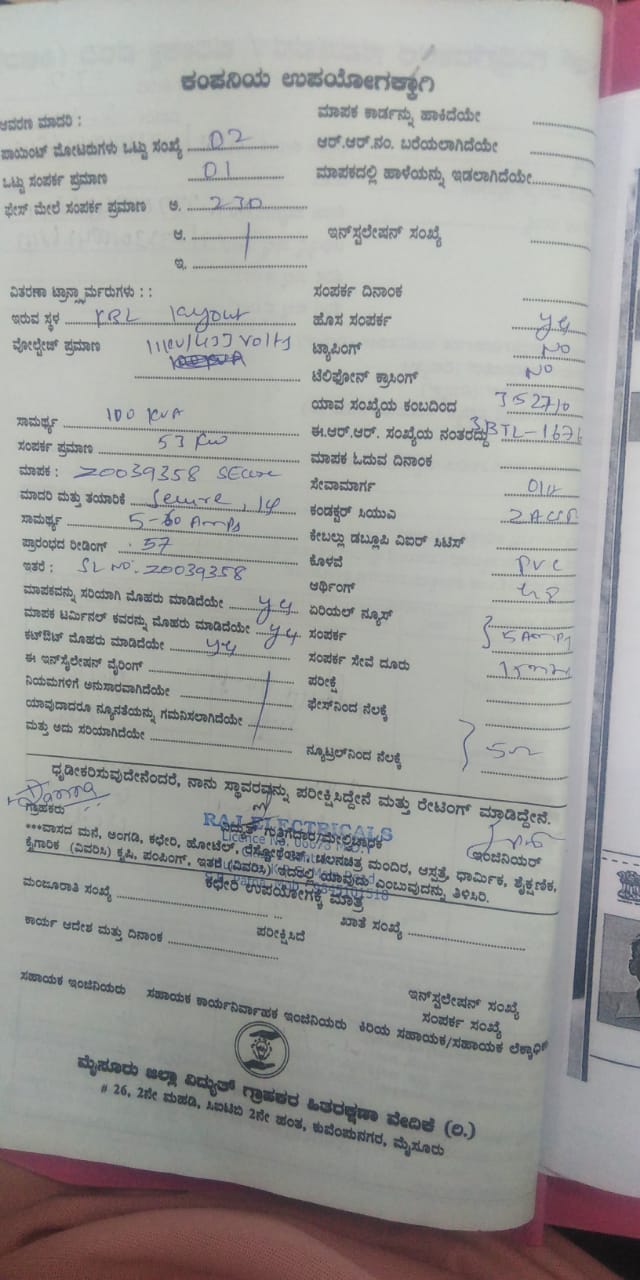 ಕಂಪನಿಯ ಉಪಯೋಗಕ್ಕಾಗಿ
ಆವರಣ ಮಾದರಿ :
ಪಾಯಿಂಟ್ ಮೋಟರುಗಳು ಒಟ್ಟು ಸಂಖ್ಯೆ 02
ಒಟ್ಟು ಸಂಪರ್ಕ ಪ್ರಮಾಣ 01
ಫೇಸ್ ಮೇಲೆ ಸಂಪರ್ಕ ಪ್ರಮಾಣ ಅ. 230
ಆ.
ಇ.
ವಿತರಣಾ ಟ್ರಾನ್ಸ್ಫಾರ್ಮರುಗಳು : :
ಇರುವ ಸ್ಥಳ KBL Layout
ವೋಲ್ಟೇಜ್ ಪ್ರಮಾಣ 11KV/433 Volts
ಸಾಮರ್ಥ್ಯ 100 KVA
ಸಂಪರ್ಕ ಪ್ರಮಾಣ 53 KW
ಮಾಪಕ : Z0039358 SEcure
ಮಾದರಿ ಮತ್ತು ತಯಾರಿಕೆ Secure, 1φ
ಸಾಮರ್ಥ್ಯ Amps
ಪ್ರಾರಂಭದ ರೀಡಿಂಗ್ .57
ಇತರೆ : SL NO: Z0039358
ಮಾಪಕವನ್ನು ಸರಿಯಾಗಿ ಮೊಹರು ಮಾಡಿದೆಯೇ yes
ಮಾಪಕ ಟರ್ಮಿನಲ್ ಕವರನ್ನು ಮೊಹರು ಮಾಡಿದೆಯೇ yes
ಕಟ್‌ಔಟ್ ಮೊಹರು ಮಾಡಿದೆಯೇ yes
ಈ ಇನ್‌ಸ್ಟಾಲೇಷನ್ ವೈರಿಂಗ್
ನಿಯಮಗಳಿಗೆ ಅನುಸಾರವಾಗಿದೆಯೇ
ಯಾವುದಾದರೂ ನ್ಯೂನತೆಯನ್ನು ಗಮನಿಸಲಾಗಿದೆಯೇ
ಮತ್ತು ಅದು ಸರಿಯಾಗಿದೆಯೇ
ಮಾಪಕ ಕಾರ್ಡನ್ನು ಹಾಕಿದೆಯೇ
ಆರ್.ಆರ್.ನಂ. ಬರೆಯಲಾಗಿದೆಯೇ
ಮಾಪಕದಲ್ಲಿ ಹಾಳೆಯನ್ನು ಇಡಲಾಗಿದೆಯೇ
ಇನ್‌ಸ್ಟಲೇಷನ್ ಸಂಖ್ಯೆ
ಸಂಪರ್ಕ ದಿನಾಂಕ
ಹೊಸ ಸಂಪರ್ಕ yes
ಟ್ಯಾಪಿಂಗ್ NO
ಟೆಲಿಫೋನ್ ಕ್ರಾಸಿಂಗ್ NO
ಯಾವ ಸಂಖ್ಯೆಯ ಕಂಬದಿಂದ
ಈ.ಆರ್.ಆರ್. ಸಂಖ್ಯೆಯ ನಂತರದ್ದು
ಮಾಪಕ ಓದುವ ದಿನಾಂಕ
ಸೇವಾಮಾರ್ಗ
ಕಂಡಕ್ಟರ್ ಸಿಯುವಿ
ಕೇಬಲ್ಲು ಡಬ್ಲೂಪಿ ವಿಐರ್ ಸಿಟಿಸ್
ಕೊಳವೆ PVC
ಆರ್ಥಿಂಗ್
ಏರಿಯಲ್ ನ್ಯೂಸ್
ಸಂಪರ್ಕ 5 Amps
ಸಂಪರ್ಕ ಸೇವೆ ದೂರು
ಪರೀಕ್ಷೆ
ಫೇಸ್‌ನಿಂದ ನೆಲಕ್ಕೆ
ನ್ಯೂಟ್ರಲ್‌ನಿಂದ ನೆಲಕ್ಕೆ
ಧೃಡೀಕರಿಸುವುದೇನೆಂದರೆ, ನಾನು ಸ್ಥಾವರವನ್ನು ಪರೀಕ್ಷಿಸಿದ್ದೇನೆ ಮತ್ತು ರೇಟಿಂಗ್ ಮಾಡಿದ್ದೇನೆ.
RAJ ELECTRICALS
ಗ್ರಾಹಕರು ವಿದ್ಯುತ್ ಗುತ್ತಿಗೆದಾರ/ಮೇಲ್ವಿಚಾರಕ ಇಂಜಿನಿಯರ್
***ವಾಸದ ಮನೆ, ಅಂಗಡಿ, ಕಛೇರಿ, ಹೋಟೆಲ್, ರೆಸ್ಟೋರೆಂಟ್, ಚಲನಚಿತ್ರ ಮಂದಿರ, ಆಸ್ಪತ್ರೆ, ಧಾರ್ಮಿಕ, ಶೈಕ್ಷಣಿಕ,
ಕೈಗಾರಿಕೆ (ವಿವರಿಸಿ) ಕೃಷಿ, ಪಂಪಿಂಗ್, ಇತರೆ (ವಿವರಿಸಿ) ಇದರಲ್ಲಿ ಯಾವುದು ಎಂಬುವುದನ್ನು ತಿಳಿಸಿರಿ.
ಕಛೇರಿ ಉಪಯೋಗಕ್ಕೆ ಮಾತ್ರ
ಮಂಜೂರಾತಿ ಸಂಖ್ಯೆ ಖಾತೆ ಸಂಖ್ಯೆ
ಕಾರ್ಯ ಆದೇಶ ಮತ್ತು ದಿನಾಂಕ ಪರೀಕ್ಷಿಸಿದೆ
ಇನ್‌ಸ್ಟಲೇಷನ್ ಸಂಖ್ಯೆ
ಸಂಪರ್ಕ ಸಂಖ್ಯೆ
ಸಹಾಯಕ ಇಂಜಿನಿಯರು ಸಹಾಯಕ ಕಾರ್ಯನಿರ್ವಾಹಕ ಇಂಜಿನಿಯರು ಕಿರಿಯ ಸಹಾಯಕ/ಸಹಾಯಕ ಲೆಕ್ಕಾಧಿಕಾರಿ
ಮೈಸೂರು ಜಿಲ್ಲಾ ವಿದ್ಯುತ್ ಗ್ರಾಹಕರ ಹಿತರಕ್ಷಣಾ ವೇದಿಕೆ (ರಿ.)
# 26, 2ನೇ ಮಹಡಿ, ಸಿಐಟಿಬಿ 2ನೇ ಹಂತ, ಕುವೆಂಪುನಗರ, ಮೈಸೂರು